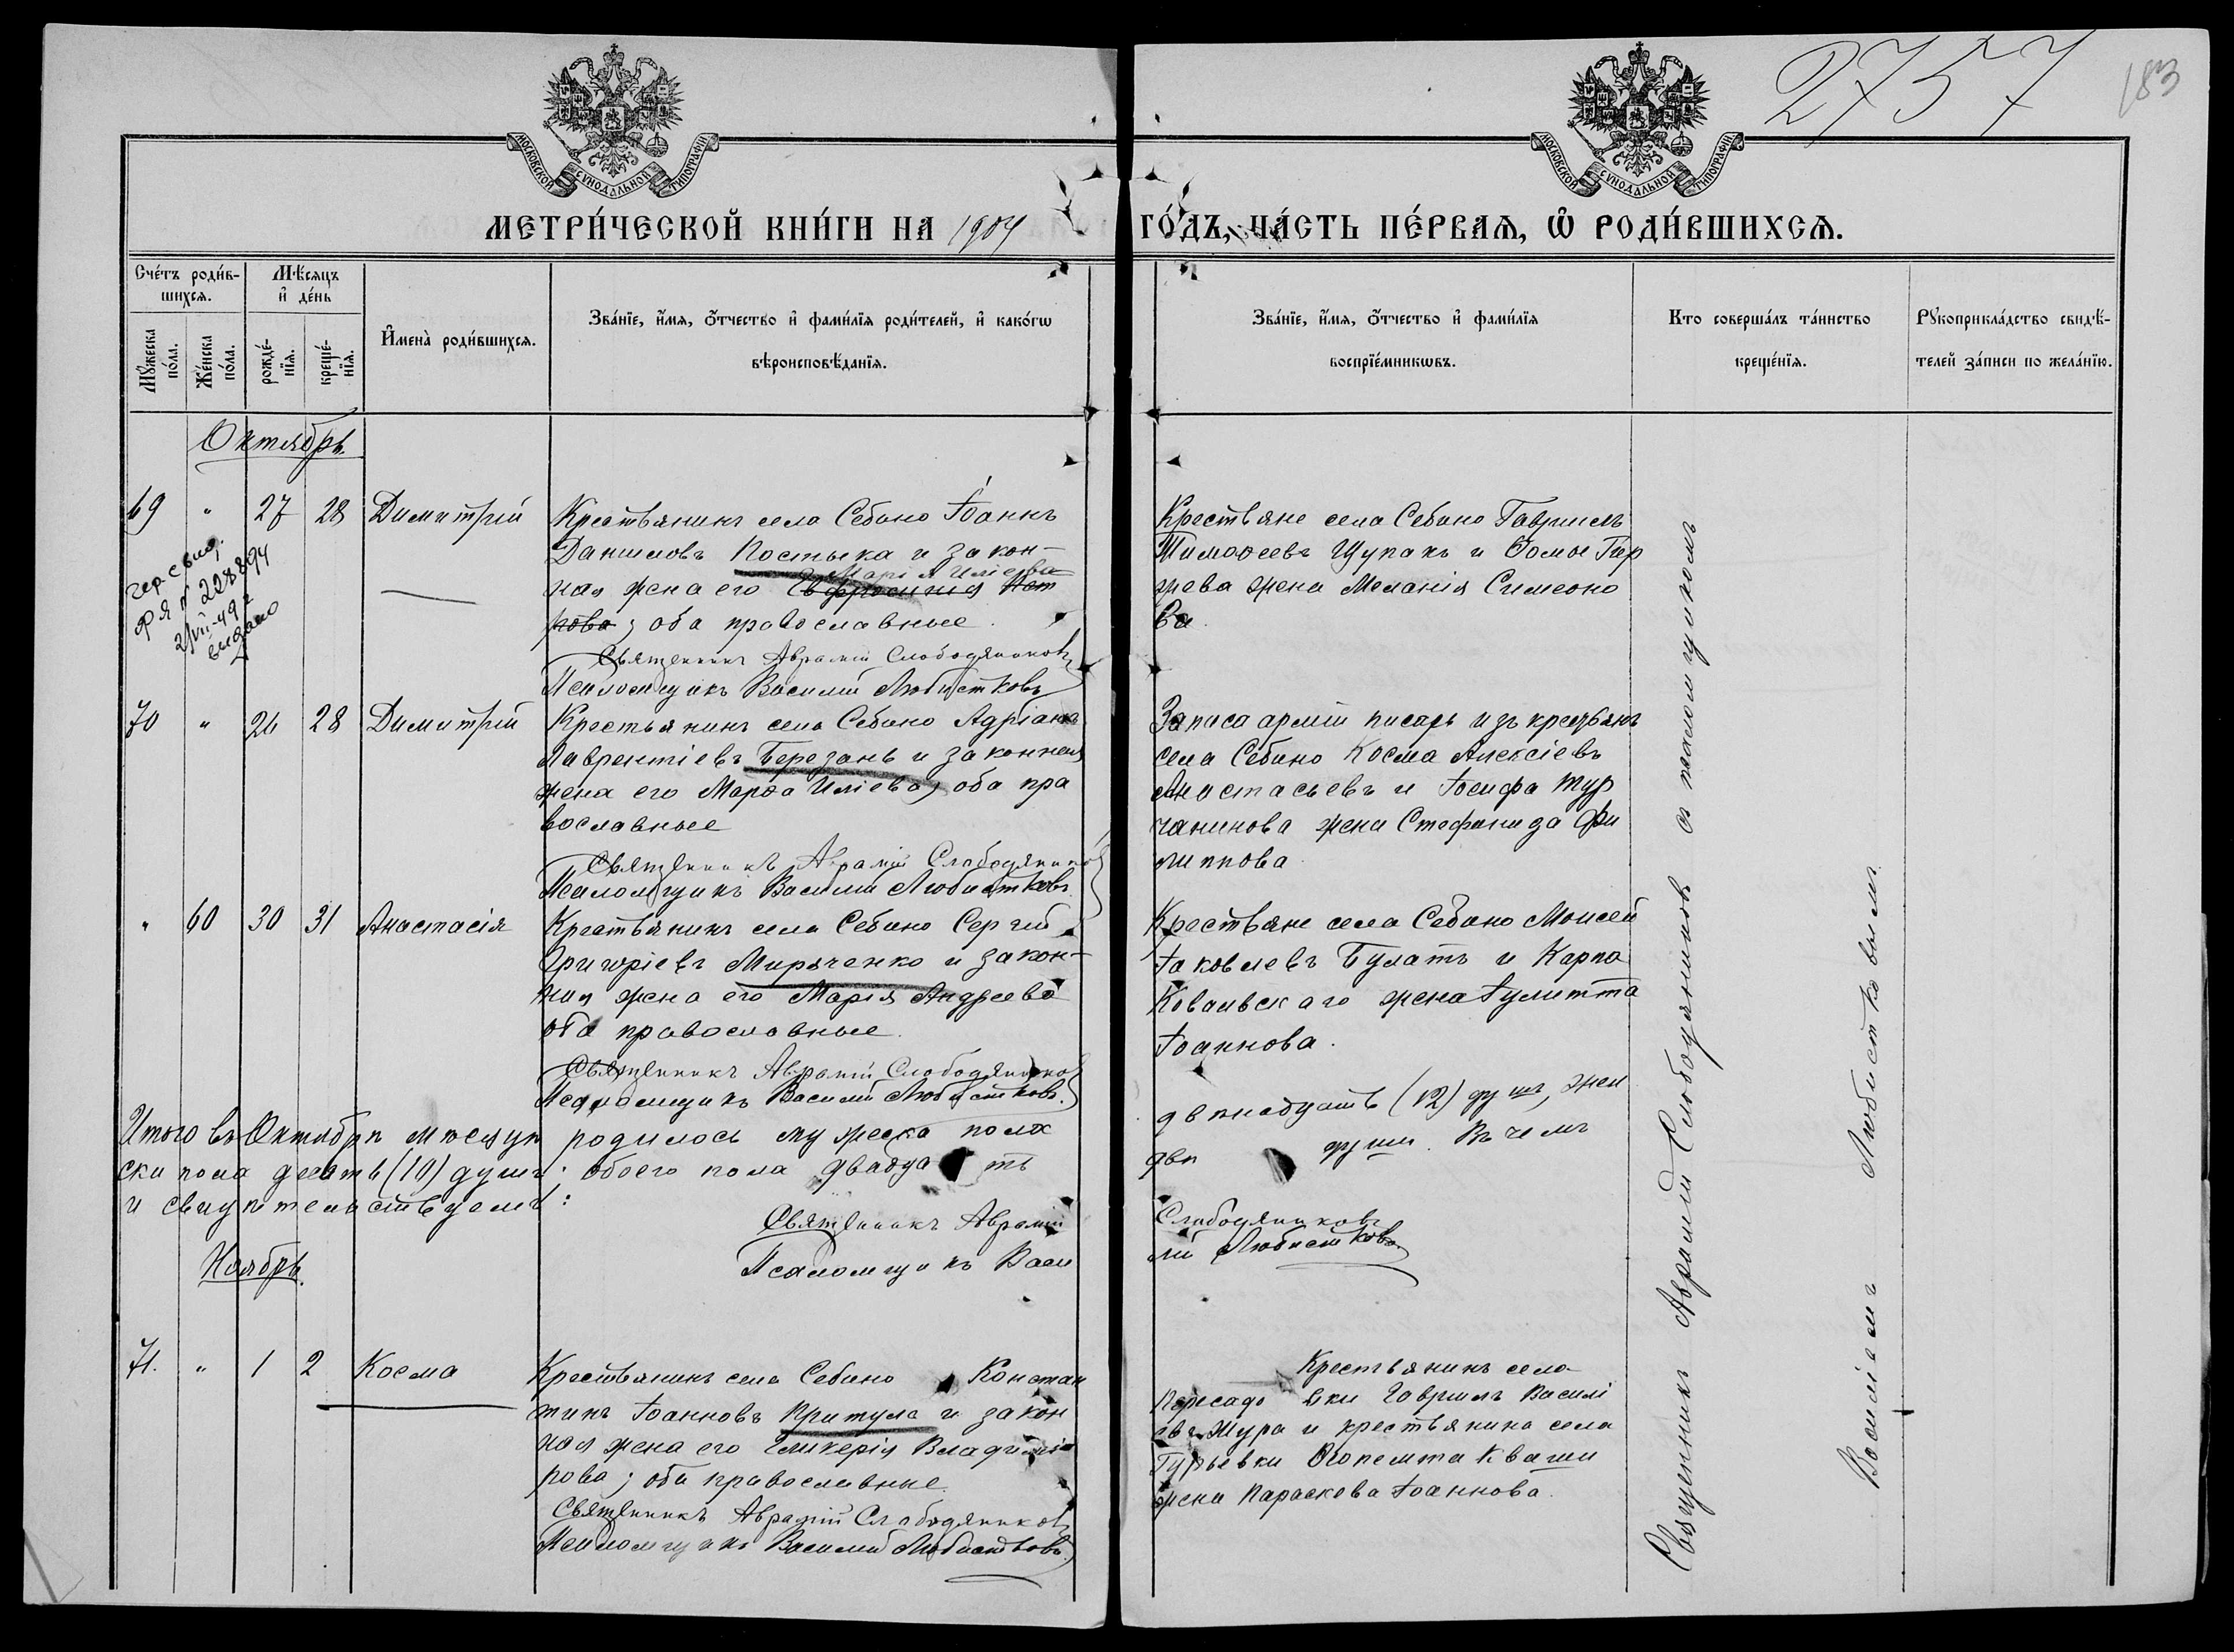 2757
183
МОСКОВСКОЙ СѴНОДАЛЬНОЙ ТИПОГРАФІИ
МОСКОВСКОЙ СѴНОДАЛЬНОЙ ТИПОГРАФІИ
МЕТРИ́ЧЕСКОЙ КНИ́ГИ НА 1904 ГО́ДЪ, ЧА́СТЬ ПЕ́РВАѦ, Ѡ҆ РОДИ́ВШИХСѦ.
Счéтъ роди́в-
шихсѧ.
Мѣ́сѧцъ
и҆ де́нь
Мꙋ́жеска по́ла.
Же́нска по́ла.
рожде́-
нїѧ.
креще́-
нїѧ.
И҆мена̀ роди́вшихсѧ.
Зва́нїе, и҆́мѧ, ѻ҆́тчество и҆ фами́лїѧ роди́телей, и҆ како́гѡ
вѣроисповѣ́данїѧ.
Зва́нїе, и҆́мѧ, ѻ҆́тчество и҆ фами́лїѧ
воспрїе́мникѡвъ.
Кто соверша́лъ та́инство
креще́нїѧ.
Рꙋкоприкла́дство свидѣ́-
телей за́писи по жела́нїю.
Октябрь
69 " 27 28 Димитрій
Крестьянинъ села Себино Іоаннъ
Даниловъ Костыка и закон-
Марія Иліева
ная жена его Евфросинія Пет
рова; оба православные.
Священникъ Аврамій Слободяниковъ
Псаломщикъ Василій Любистковъ
Крестьяне села Себино Гавриилъ
Тимоѳеевъ Щупакъ и Ѳомы Гер
жева жена Меланія Симеоно
ва.
гер свид.
ФЯ № 208894
2/VII-49 г
выдано
70 " 26 28 Димитрій
Крестьянинъ села Себино Адріанъ
Лаврентіевъ Березань и законная
жена его Марѳа Иліева; оба пра
вославные
Священникъ Аврамій Слободяников
Псаломщикъ Василій Любистковъ
Запаса арміи писарь изъ крестьянъ
села Себино Косма Алексіевъ
Анастасьевъ и Іосифа Тур
чанинова жена Стефанида Фи
липпова
" 60 30 31 Анастасія
Крестьянинъ села Себино Сергій
Григоріевъ Мироченко и закон-
ная жена его Марія Андреева
оба православные.
Священникъ Аврамій Слободяников
Псаломщикъ Василій Любистковъ.
Крестьяне села Себино Моисей
Іаковлевъ Булатъ и Карпа
Ковальскаго жена Іулитта
Іоаннова.
Итого въ Октябрѣ мѣсяцѣ родилось мужеска пола двѣнадцать (12) душъ, жен
ски пола десять (10) душъ: обоего пола двадцать двѣ души. Въ чемъ
и свидѣтельствуемъ:
Священникъ Аврамій Слободяниковъ
Псаломщикъ Василій Любистковъ
Ноябрь.
71. " 1 2 Косма
Крестьянинъ села Себино Констан
тинъ Іоанновъ Притула и закон
ная жена его Гликерія Владимі
рова; оба православные.
Священникъ Аврамій Слободяниковъ
Псаломщикъ Василій Любистковъ.
Крестьянинъ села
Пересадовки Гавриилъ Василі
евъ Жура и крестьянина села
Гурьевки Ѳеопемпта Кваши
жена Параскева Іоаннова.
Священникъ Аврамій Слободяниковъ съ псаломщикомъ
Василіемъ Любистковымъ